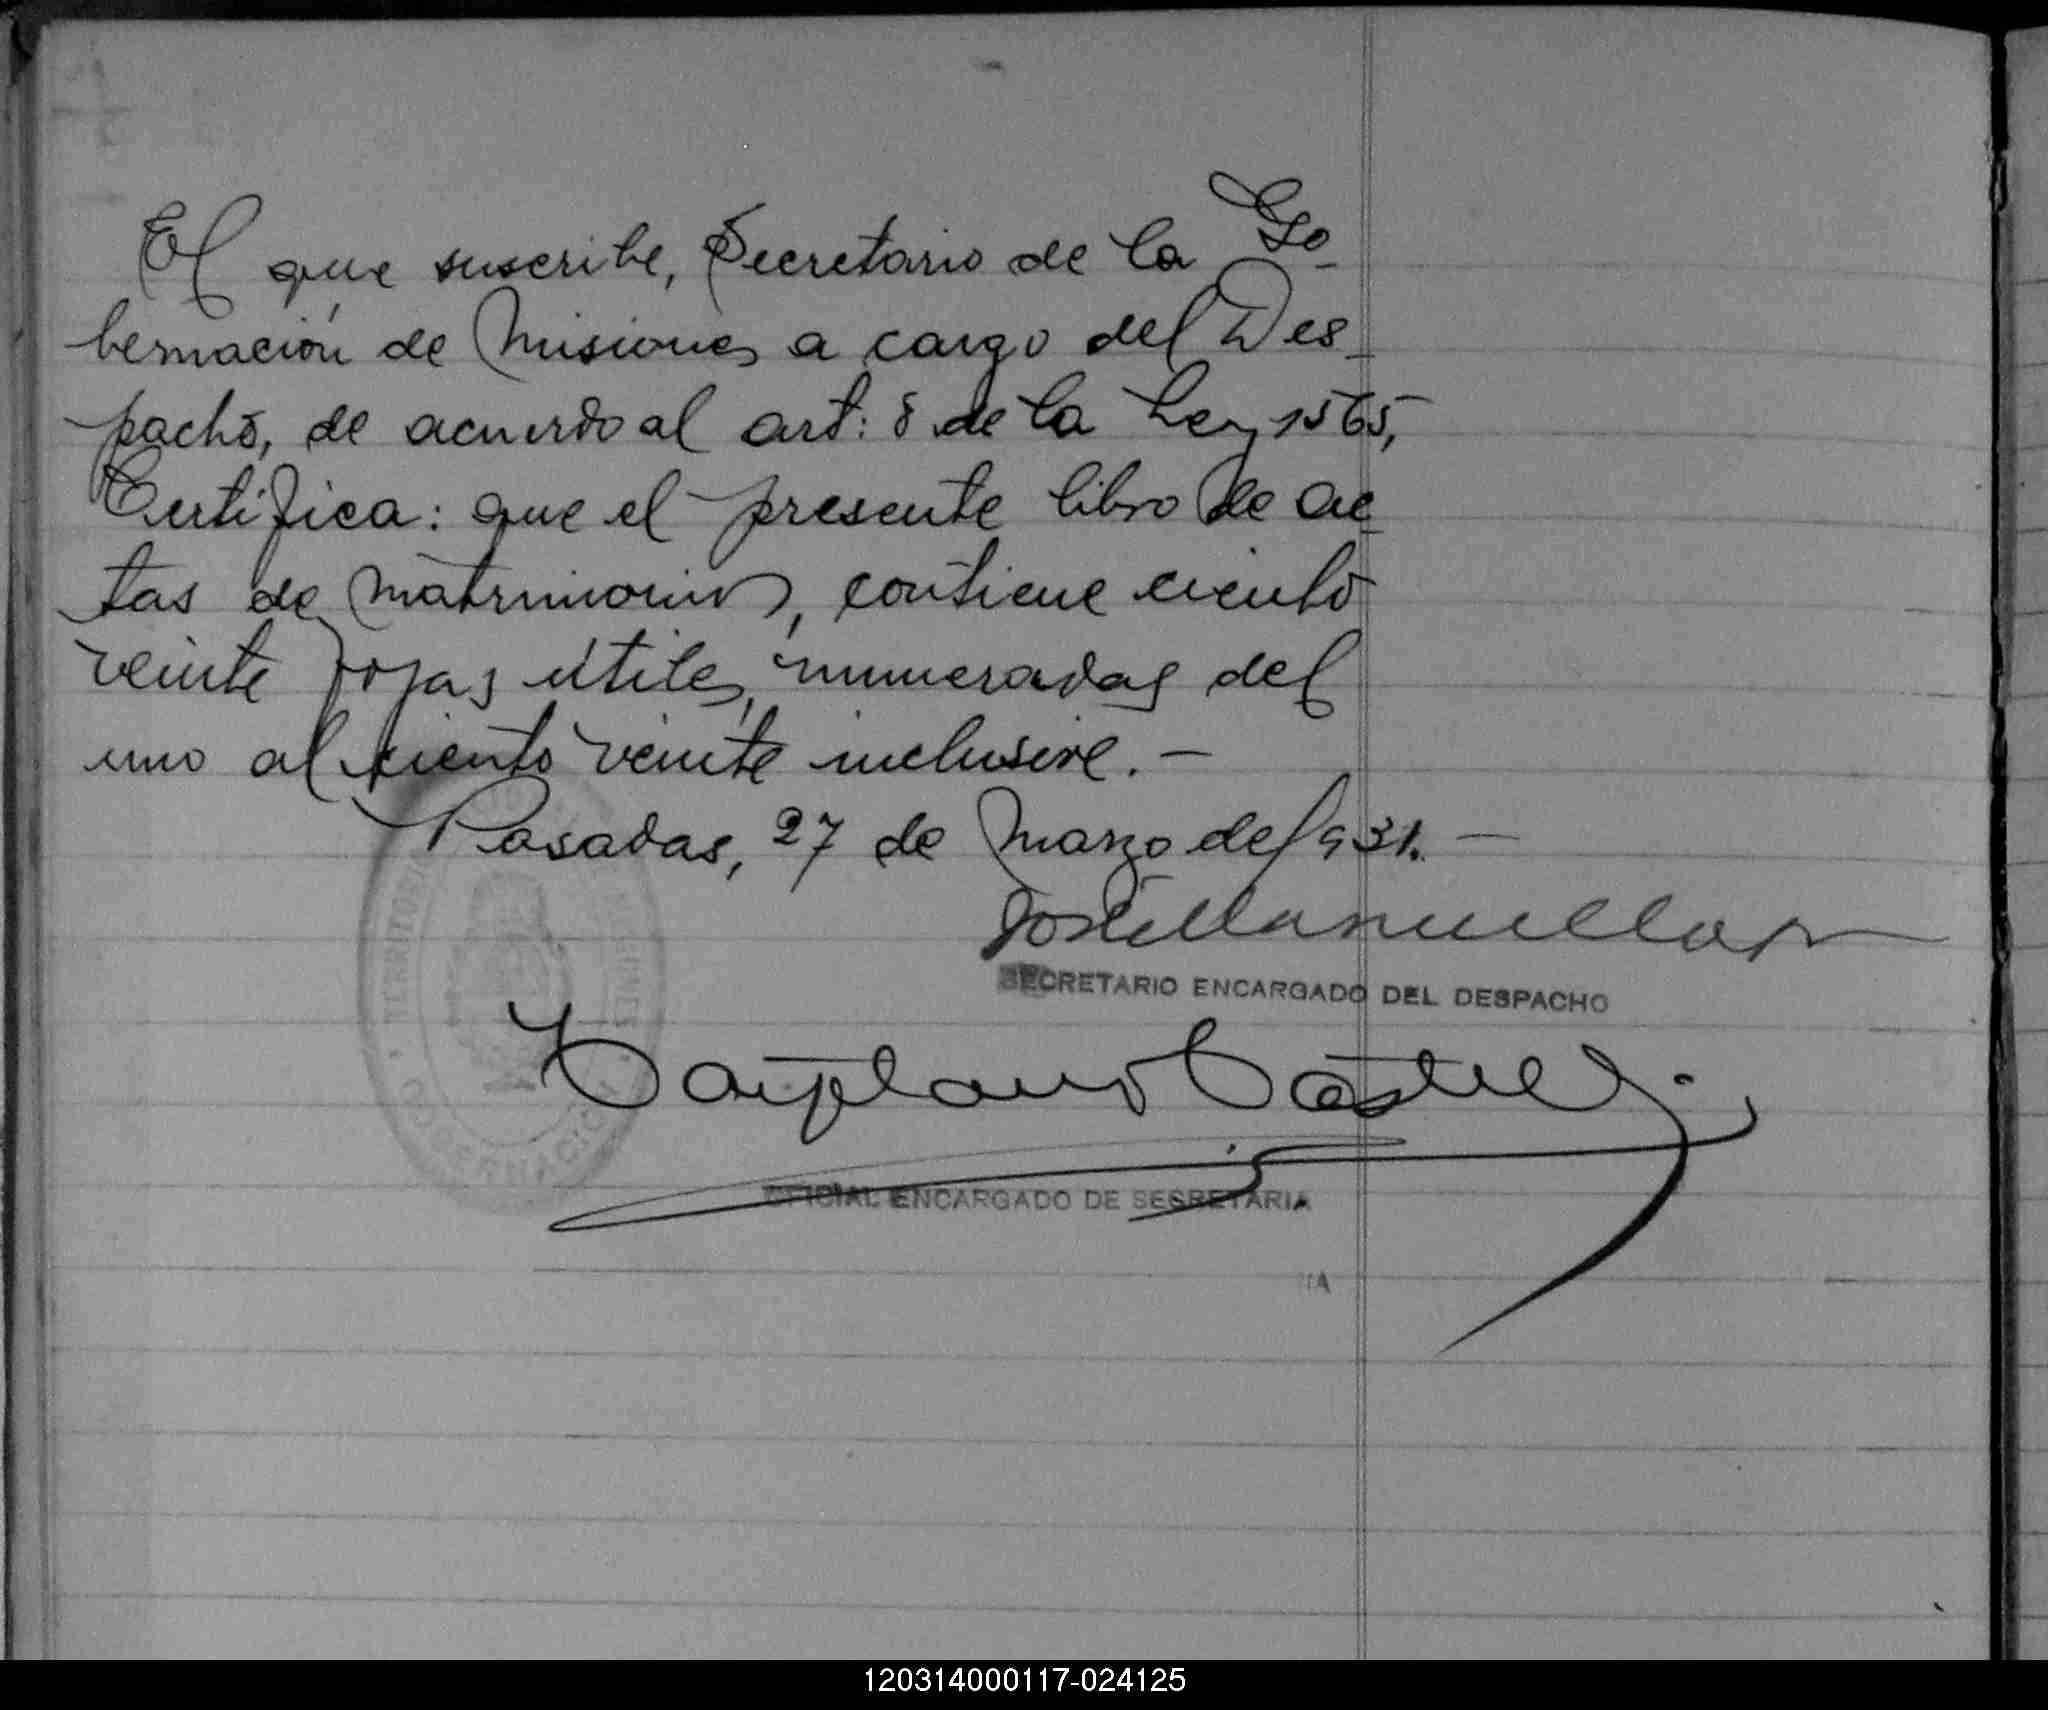 El que suscribe, Secretario de la Go-
bernación de Misiones a cargo del Des-
pacho, de acuerdo al art: 8 de la Ley 1565,
Certifica: que el presente libro de ac-
tas de matrimonios, contiene ciento
veinte fojas útiles, numeradas del
uno al ciento veinte inclusive. —
Posadas, 27 de Marzo de 1931. —
José Manuel
SECRETARIO ENCARGADO DEL DESPACHO
TERRITORIO MISIONES
GOBERNACION
OFICIAL ENCARGADO DE SECRETARIA
IA
120314000117-024125